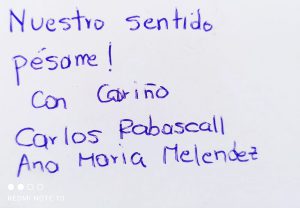 Nuestro sentido
pésame!
Con Cariño
Carlos Rabascall
Ana Maria Melendez
REDMI NOTE 10